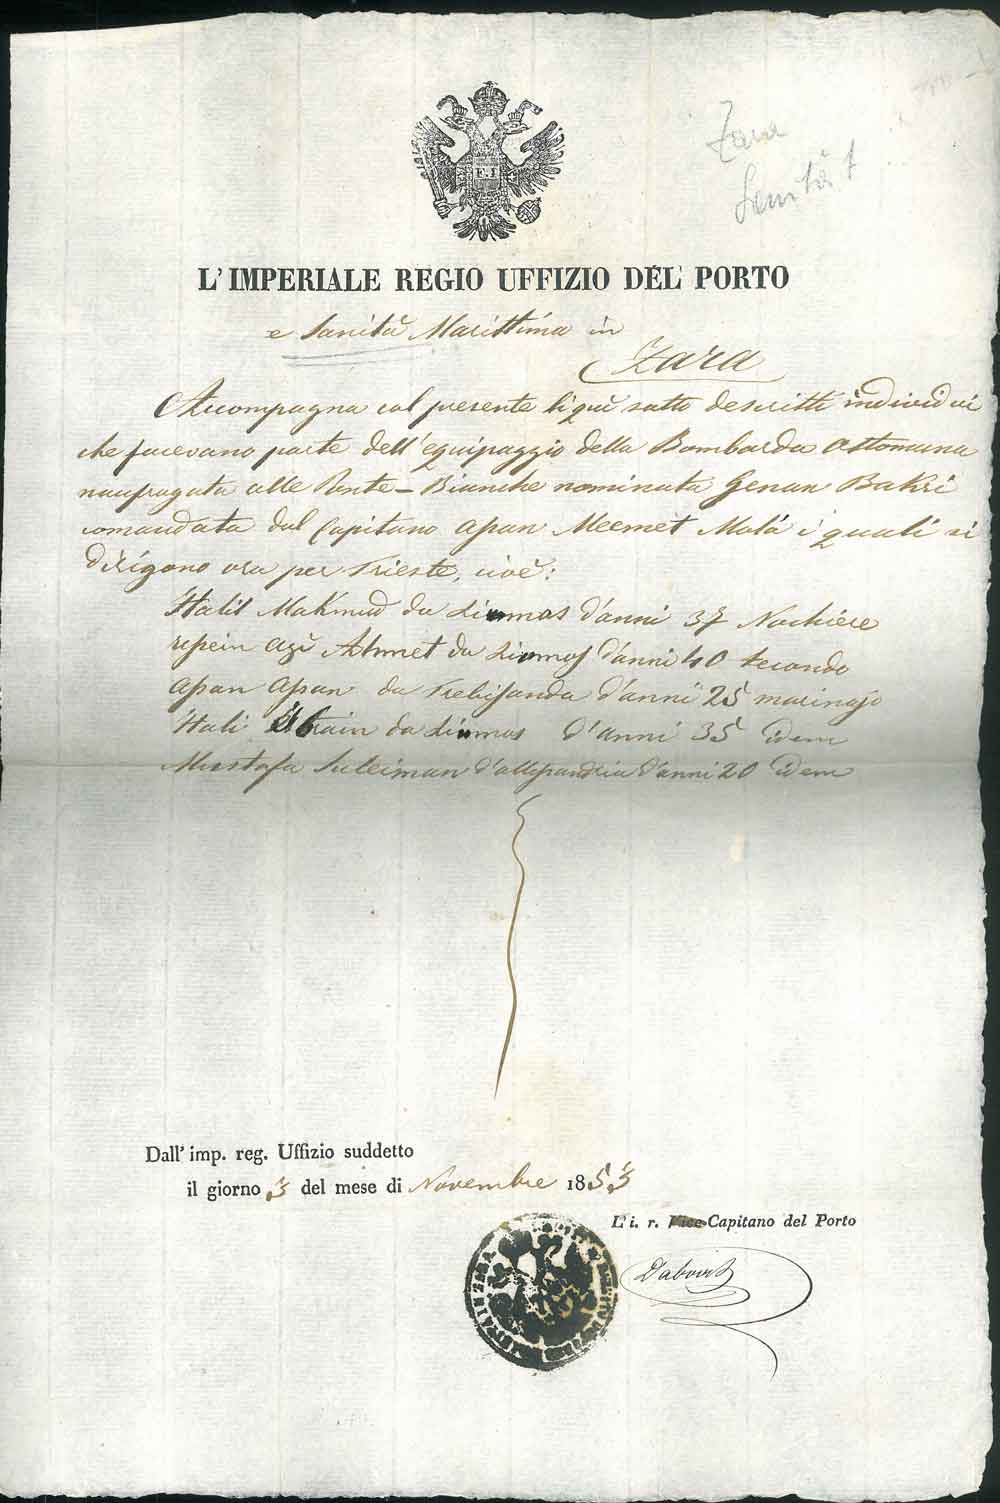 F. I.
Zara
Sanität
L'IMPERIALE REGIO UFFIZIO DEL PORTO
e Sanità Marittima in
Zara
Accompagna col presente li quì sotto descritti individui
che facevano parte dell'equipaggio della Bombarda Ottomana
naufragata alle Punte-Bianche nominata Genan Bakri
comandata dal Capitano Apan Meemet Molà i quali si
dirigono ora per Trieste, cioè:
Halil Makmud da d'anni 37 Nochiere
Agì Ahmet da d'anni 40 secondo
Apan Apan da Trebisonda d'anni 25 marinajo
Hali da d'anni 35 idem
Mustafa Suleiman d'allessandria d'anni 20 idem
Dall' imp. reg. Uffizio suddetto
il giorno 3 del mese di Novembre 1853
L' i. r. Vice-Capitano del Porto